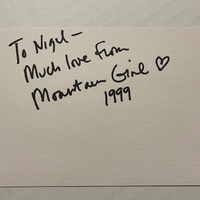 To Nigel —
Much love from
Mountain Girl ♡
1999